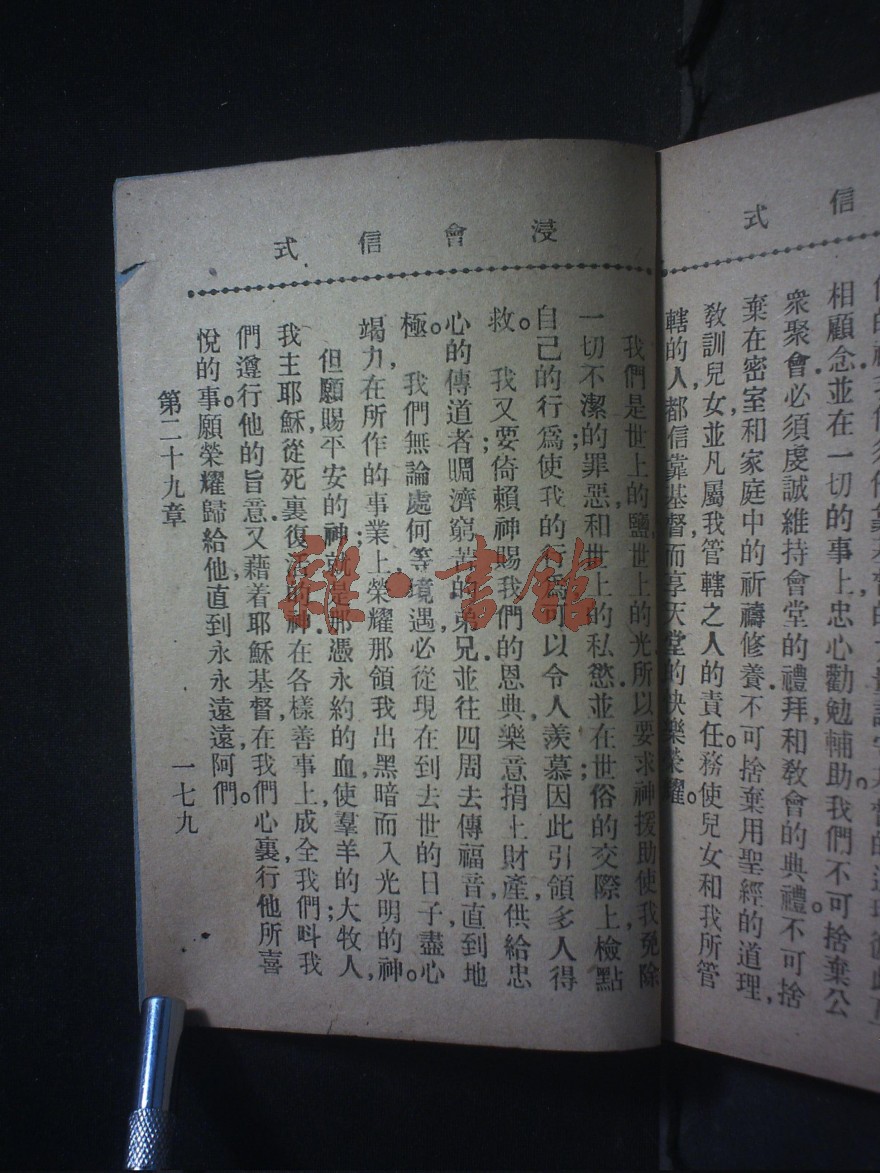 信式
相顧念並在一切的事上忠心勸勉輔助我們不可捨棄公
衆聚會必須虔誠維持會堂的禮拜和敎會的典禮不可捨
棄在密室和家庭中的祈禱修養不可捨棄用聖經的道理,
敎訓兒女並凡屬我管轄之人的責任。務使兒女和我所管
轄的人,都信靠基督,而享天堂的快樂榮耀。
浸會信式
我們是世上的鹽,世上的光,所以要求神援助,使我免除
一切不潔的罪惡和世上的私慾並在世俗的交際上檢點
自己的行爲使我的行爲可以令人羨慕因此引領多人得
救。我又要倚賴神賜我們的恩典樂意捐上財產供給忠
心的傳道者賙濟窮苦的弟兄並往四周去傳福音直到地
極。我們無論處何等境遇必從現在到去世的日子盡心
竭力,在所作的事業上榮耀那領我出黑暗而入光明的神。
但願賜平安的神就是那憑永約的血,使羣羊的大牧人,
我主耶穌從死裏復活的神在各樣善事上,成全我們呌我
們遵行他的旨意又藉着耶穌基督在我們心裏行他所喜
悅的事。願榮耀歸給他,直到永永遠遠,阿們。
第二十九章
一七九
雜·書館